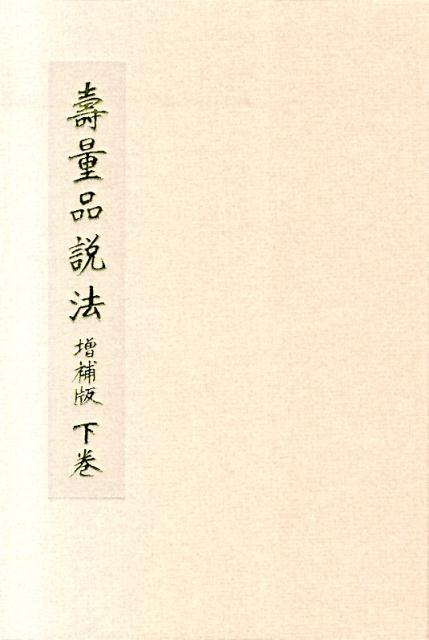 壽量品説法 増補版 下巻